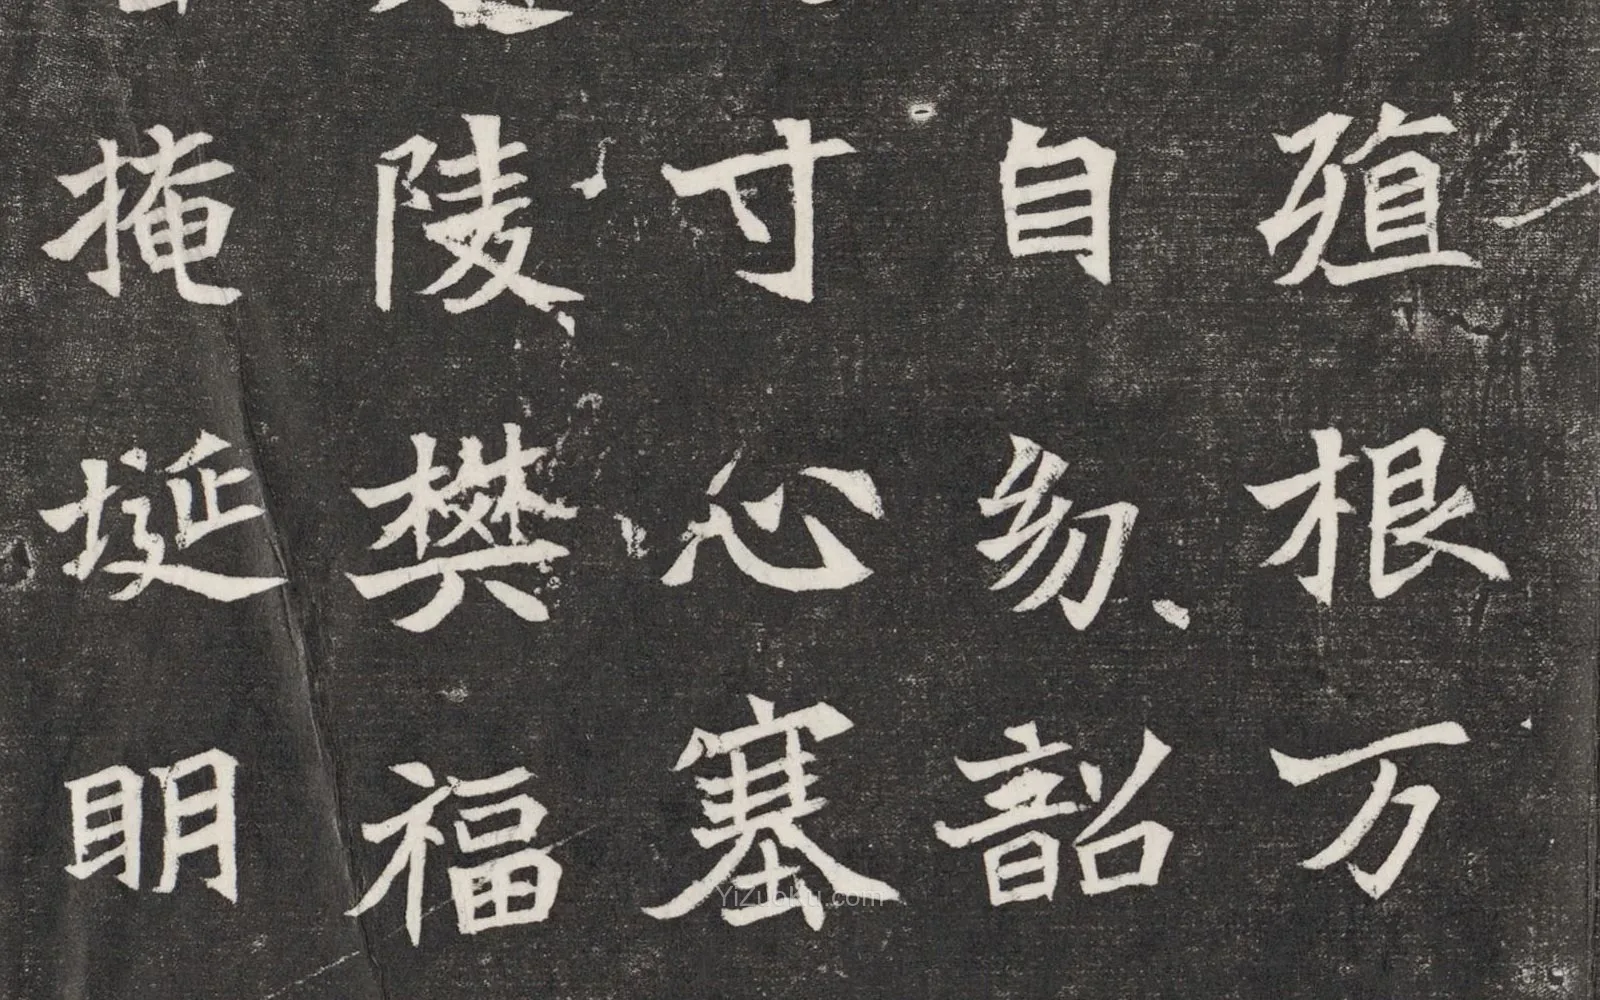 殖根万
自幼韶
寸心塞
陵樊福
掩埏明
YiZuoKu.com